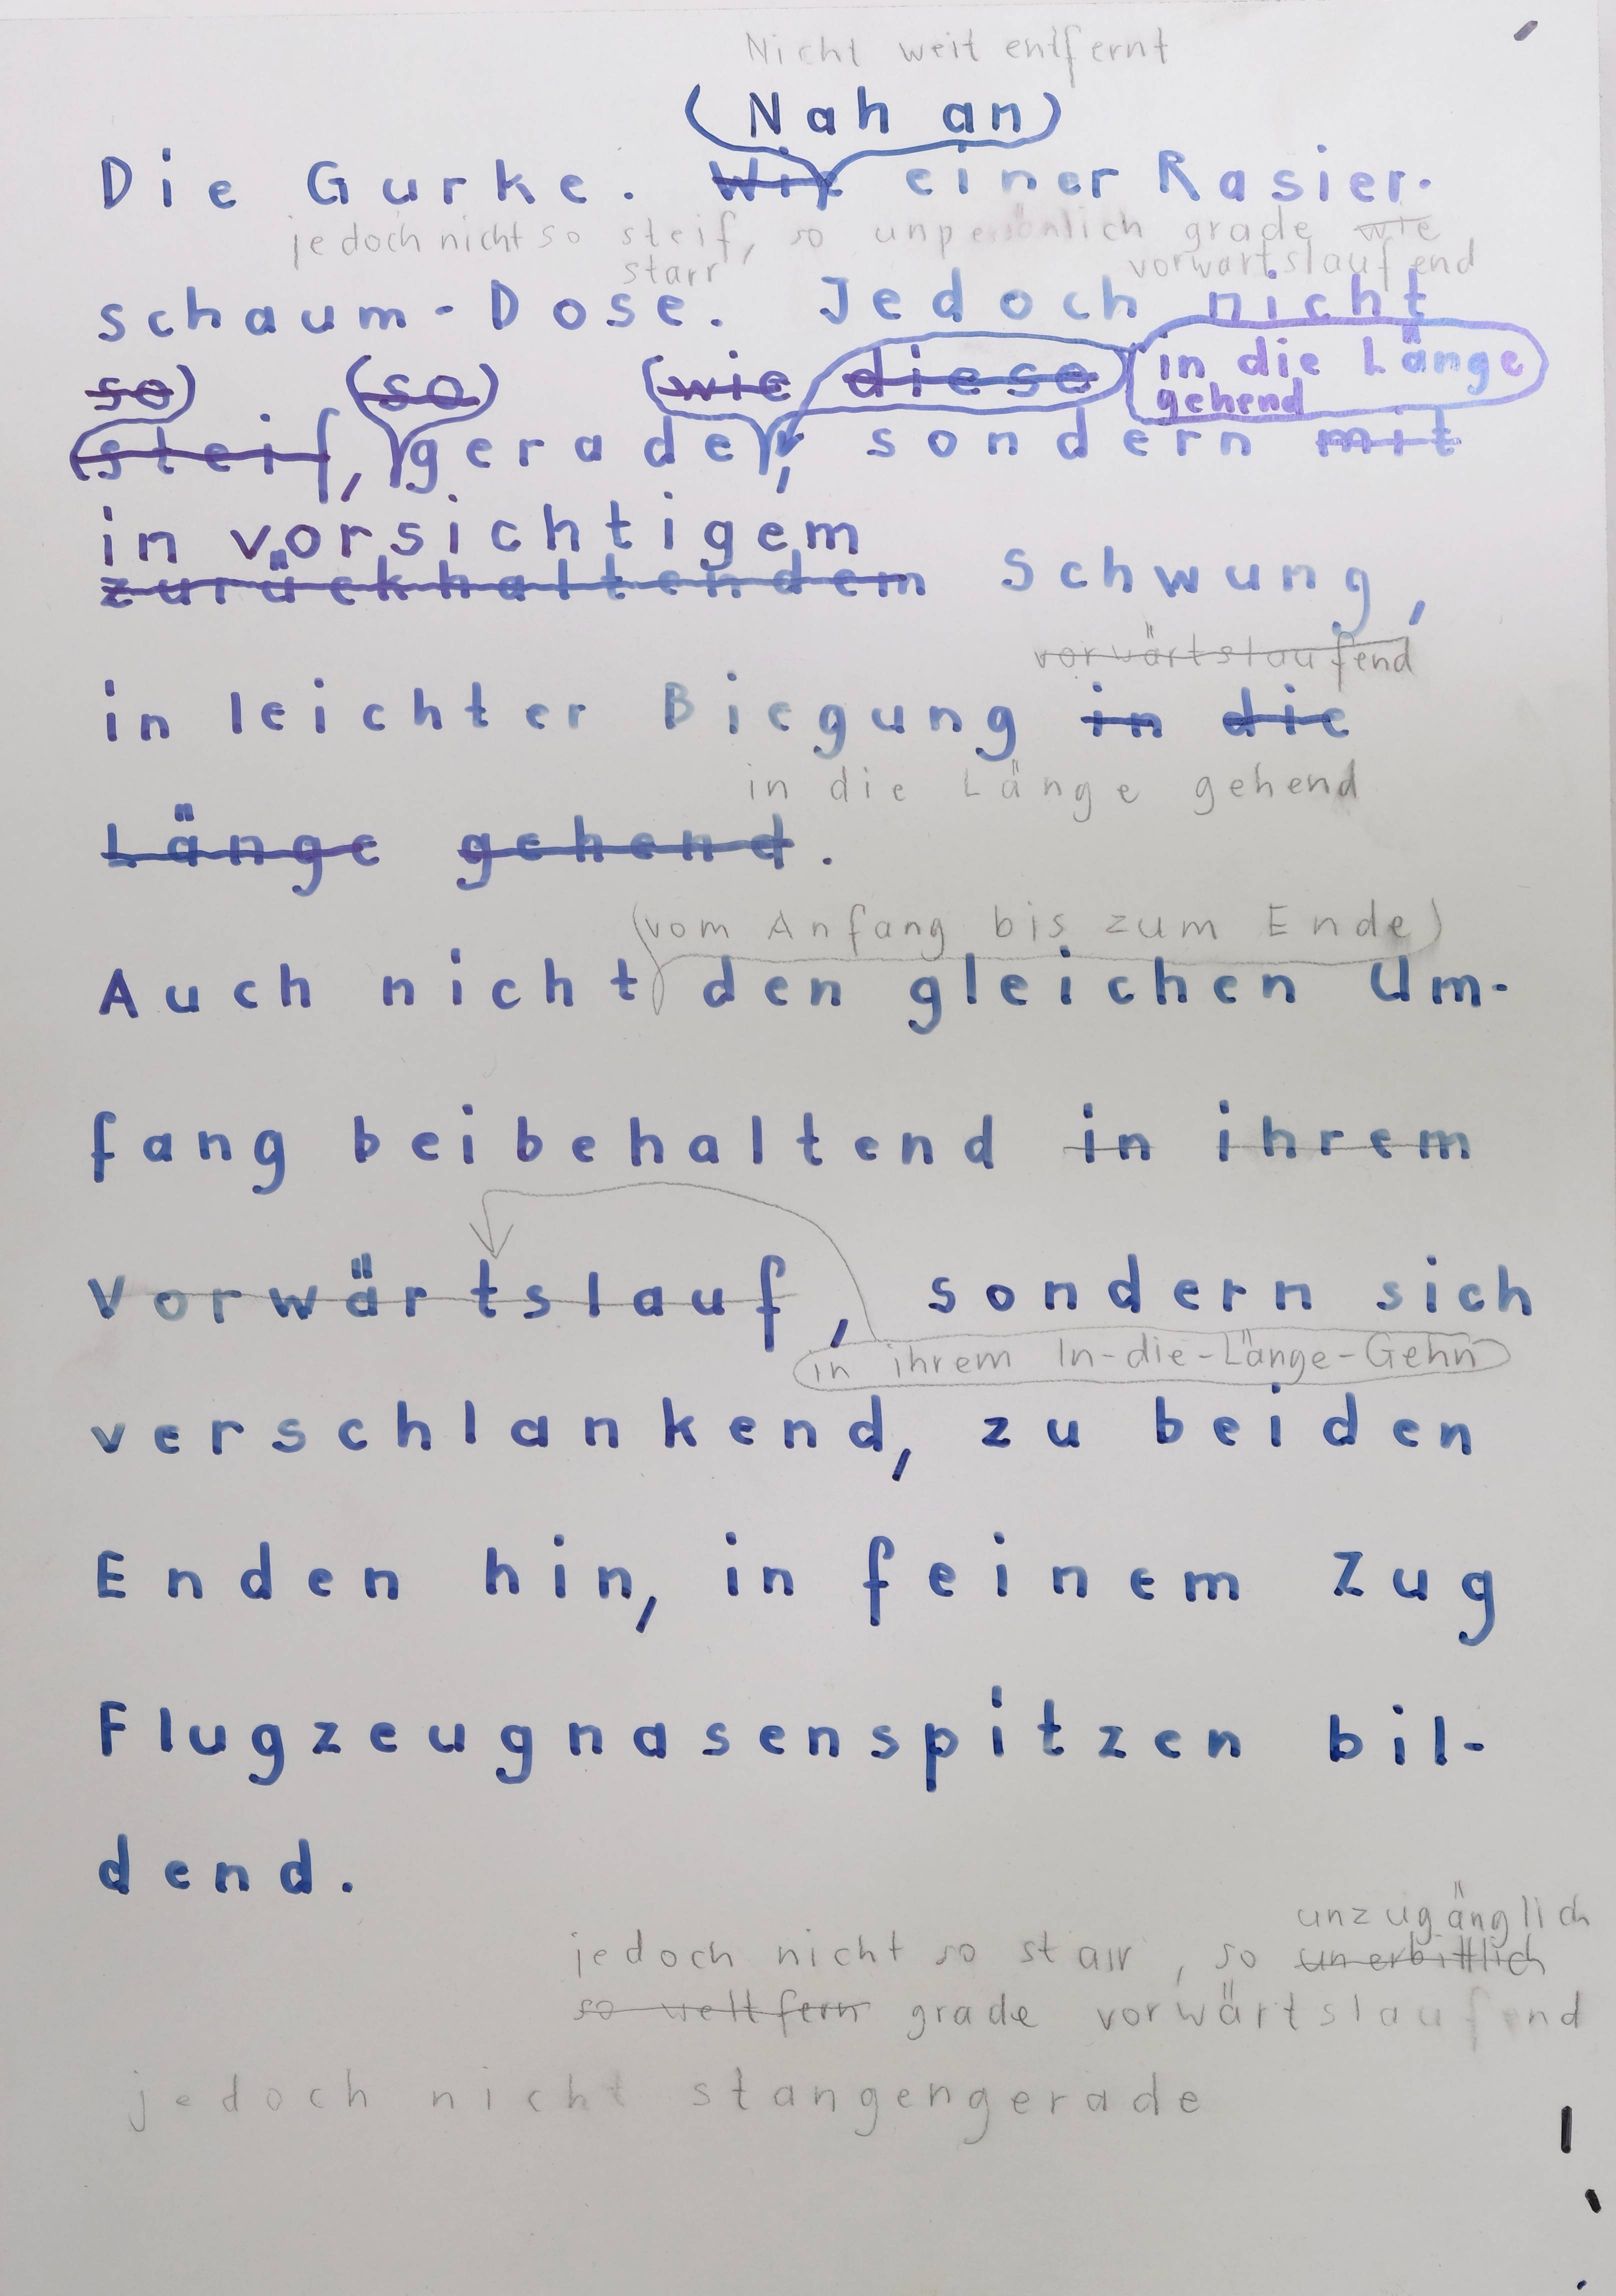 Nicht weit entfernt
(Nah an)
Die Gurke. Wie einer Rasier-
jedoch nicht so steif, so unpersönlich grade wie
starr vorwärtslaufend
schaum-Dose. Jedoch nicht
so) (so) (wie diese) in die Länge
gehend
(steif, gerade, sondern mit
in vorsichtigem
zurückhaltendem Schwung,
vorwärtslaufend
in leichter Biegung in die
in die Länge gehend
Länge gehend.
(vom Anfang bis zum Ende)
Auch nicht den gleichen Um-
fang beibehaltend in ihrem
Vorwärtslauf, sondern sich
in ihrem In-die-Länge-Gehn
verschlankend, zu beiden
Enden hin, in feinem Zug
Flugzeugnasenspitzen bil-
dend.
unzugänglich
jedoch nicht so starr, so unerbittlich
so weltfern grade vorwärtslaufend
jedoch nicht stangengerade